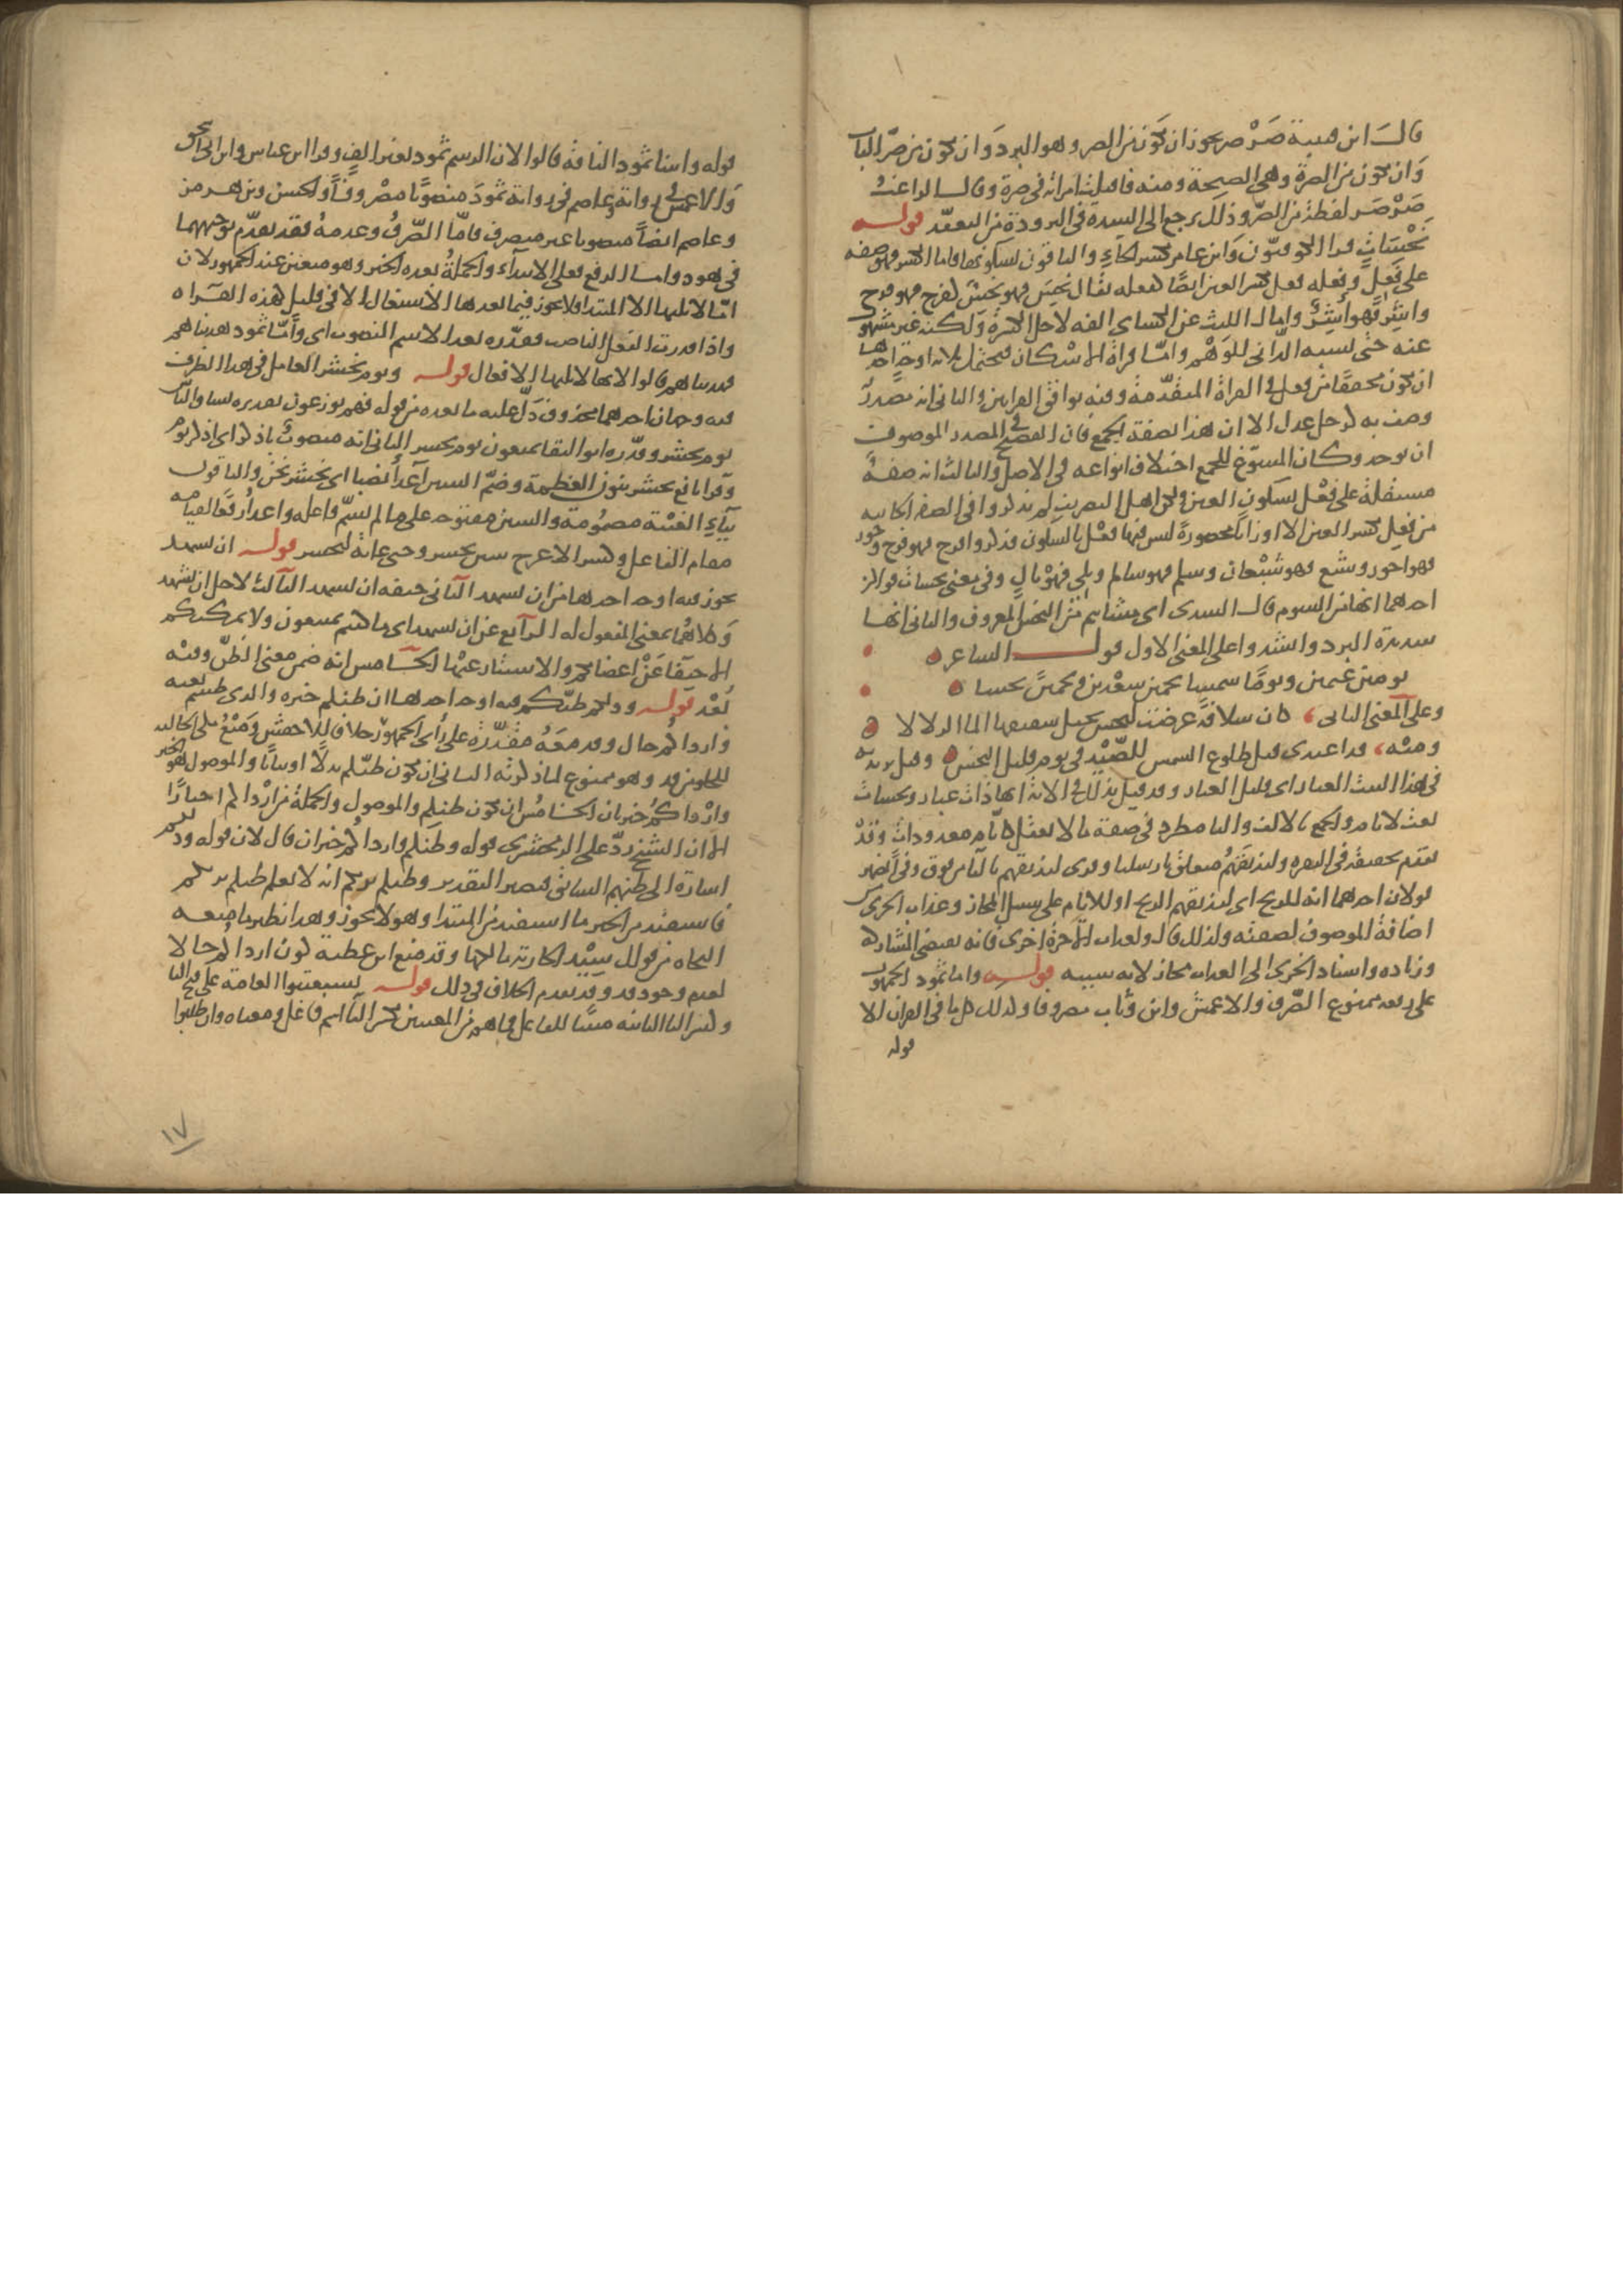 قال ابن قتيبة صَرْصر يجوز ان يكون من الصر وهو البرد وان يكون من صرّ الباب
وان يكون من الصرة وهي الصيحة ومنه فاقبلت امراته في صرة وقال الراغب
صَرْصَر لفظة من الصرّ وذلك يرجع الى الشدة في البرودة من التعقد قوله
نحْسَاتٍ قرا الكوفيون وابن عامر بكسر الحاء والباقون بسكونها فاما الكسر فهو صفه
على فَعِل وفعله فعل بكسر العين ايضا كفعله يقال نَحِسَ فهو نحس كفرح فهو فرح
واشِر فهو اشِر وامال الليث عن الكساي الفه لاجل الكسرة ولكنه غير مشهور
عنه حتى نسبه الداني للوَهْم واما قراة الاسكان فيحتمل ثلاثة اوجه احدها
ان يكون مخففا من فعل في القراة المتقدّمة وفيه توافق القراتين والثاني انه مصدر
وصف به كرجل عدل الا ان هذا يضعفه الجمع فان الفصيح في المصدر الموصوف
ان يوحد وكان المسوّغ للجمع اختلاف انواعه في الاصل والثالث انه صفة
مستقلة على فعْل بسكون العين ولكن اهل التصريف لم يذكروا في الصفة الجاييه
من فعِل بكسر العين الا اوزانا محصورة ليس فيها فعْل بالسكون فذكروا فرح فهو فرح وحور
فهو احور وشبع فهو شبْعان وسلم فهو سالم وبلي فهوْ بالٍ وفي معنى نحسات قولان
احدهما انها من الشوم قال السدي اي مشايم من النحس المعروف والثاني انها
شديدة البرد وانشدوا على المعنى الاول قول الشاعر
يومين غيمين ويوما شمسا نجمين سعْدين ونجمًا نحسا
وعلى المعنى الثاني كان سلافة عرضت لنحس يحيل شفيفها الما الزلالا
ومنه قد اغتدي قبل طلوع الشمس للصّيْد في يوم قليل النحس وقيل يريد به
في هذا البيت الغبار اي قليل الغبار وقد قيل بذلك في الاية انها ذات غبار ونحسات
نعت لايام والجمع بالالف والتا مطرد في صفة ما لا يعقل كايام معدودات وقد
تقدم تحقيقه في البقره ولنذيقهم متعلق بارسلنا وقرى لتذيقهم بالتا من فوق وفي الضمير
قولان احدهما انه للريح اي لتذيقهم الريح او للايام على سبيل المجاز وعذاب الخزي
اضافة الموصوف لصفته ولذلك قال ولعذاب الاخرة اخزى فانه يقتضي المشاركه
وزياده واسناد الخزي الى العذاب مجاز لانه سببه قوله واما ثمود الجمهور
على رفعه ممنوع الصّرف والاعمش وابن وثاب مصروفا وكذلك كل ما في القران الا
قوله
قوله واتينا ثمود الناقة قالوا لان الرسم ثمود بغير الف وقرا ابن عباس وابن ابي اسحق
والاعمش في رواية وعاصم في رواية ثمودَ منصوبًا مصْروفًا والحسن وابن هرمز
وعاصم ايضًا منصوبا غير منصرف فامّا الصّرفُ وعدمهُ فقد تقدّم توجيههما
في هود واما الرفع فعلى الابتداء والجملة بعده الخبر وهو متعين عند الجمهور لان
امّا لا يليها الا المبتدا فلا يجوز فيما بعدها الاشتغال الا في قليل كهذه القراه
واذا قدرت الفعل الناصب فقدّره بعد الاسم المنصوب اي وامّا ثمود هدينا هم
هديناهم قالوا لانها لا يليها الافعال قوله ويوم يحشر العامل في هذا الظرف
فيه وجهان احدهما محذوف دَلّ عليه ما بعده من قوله فهم يوزعون تقديره يساق الناس
يوم يحشر وقدّره ابو البقا يمنعون يوم يحشر الثاني انه منصوب باذكر اي اذكر يوم
وقرا نافع نحشر بنون العظمة وضمّ الشين اعدا نصبا اي نحشر نحن والباقون
بياء الغيبة مضمومة والشين مفتوحه على ما لم يسمّ فاعله واعدا رفعًا لقيامه
مقام الفاعل وكسر الاعرج شين نحشر وحتى غاية ليحشر قوله ان يشهد
يجوز فيه اوجه احدها من ان يشهد الثاني خيفه ان يشهد الثالث لاجل ان يشهد
وكلاهما بمعنى المفعول له الرابع عن ان يشهد اي ما كنتم تمتنعون ولا يمكنكم
الاختفا عَنْ اعضايكم والاستتار عنها الخامس انه ضمن معنى الظنّ وفيه
بُعْد قوله وذلكم ظنّكم فيه اوجه احدها ان ظنكم خبره والذي ظننتم نعته
وارداكم حال وقد معَهُ مقدّرة على رأى الجمهور خلافا للاخفش ومَنْع مكي الحاليه
للخلو من قد وهو ممنوع لما ذكرته الثاني ان يكون ظنّكم بدلًا او بيانًا والموصول هو الخبر
وارْداكم خبر ثان الخامس ان يكون ظنكم والموصول والجملة من ارْداكم اخبارًا
الا ان الشيخ ردّ على الزمخشري قوله وظنكم وارداكم خبران قال لان قوله وذلكم
اشارة الى ظنهم السابق فيصير التقدير وظنكم بربكم انه لا يعلم ظنكم بربكم
فاستفيد من الخبر ما استفيد من المبتدا وهو لا يجوز وهذا نظير ما منعه
النحاه من قولك سيّد الجارية مالكها وقد منع ابن عطية كون ارداكم حالا
لعدم وجود قد وقد تقدم الخلاف في ذلك قوله يستعتبوا العامة على فتح اليا
وكسر التا الثانيه مبنيًا للفاعل فما هم من المعتبين بكسر التا اسم فاعل ومعناه وان طلبوا
١٧